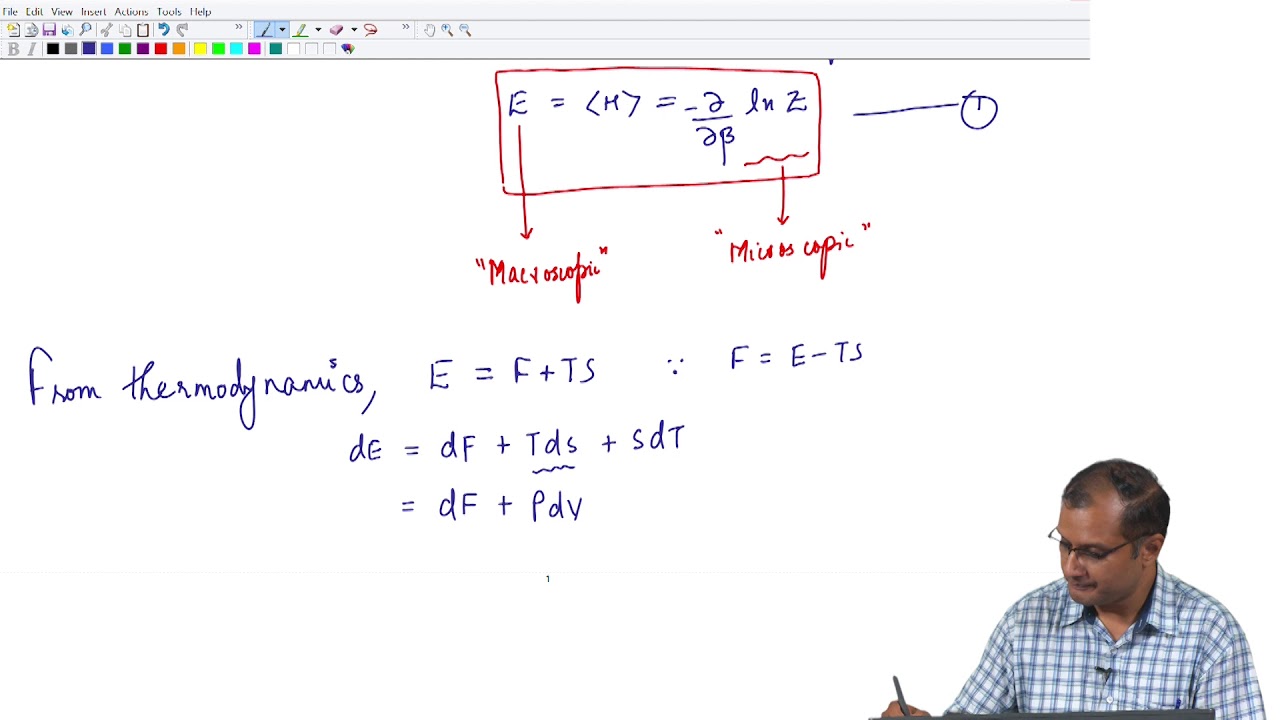 File Edit View Insert Actions Tools Help
» »
B I
E = ⟨H⟩ = -∂/∂β ln Z ——— ①
"Macroscopic" "Microscopic"
From thermodynamics, E = F + TS ∵ F = E - TS
dE = dF + Tds + SdT
= dF + PdV
1